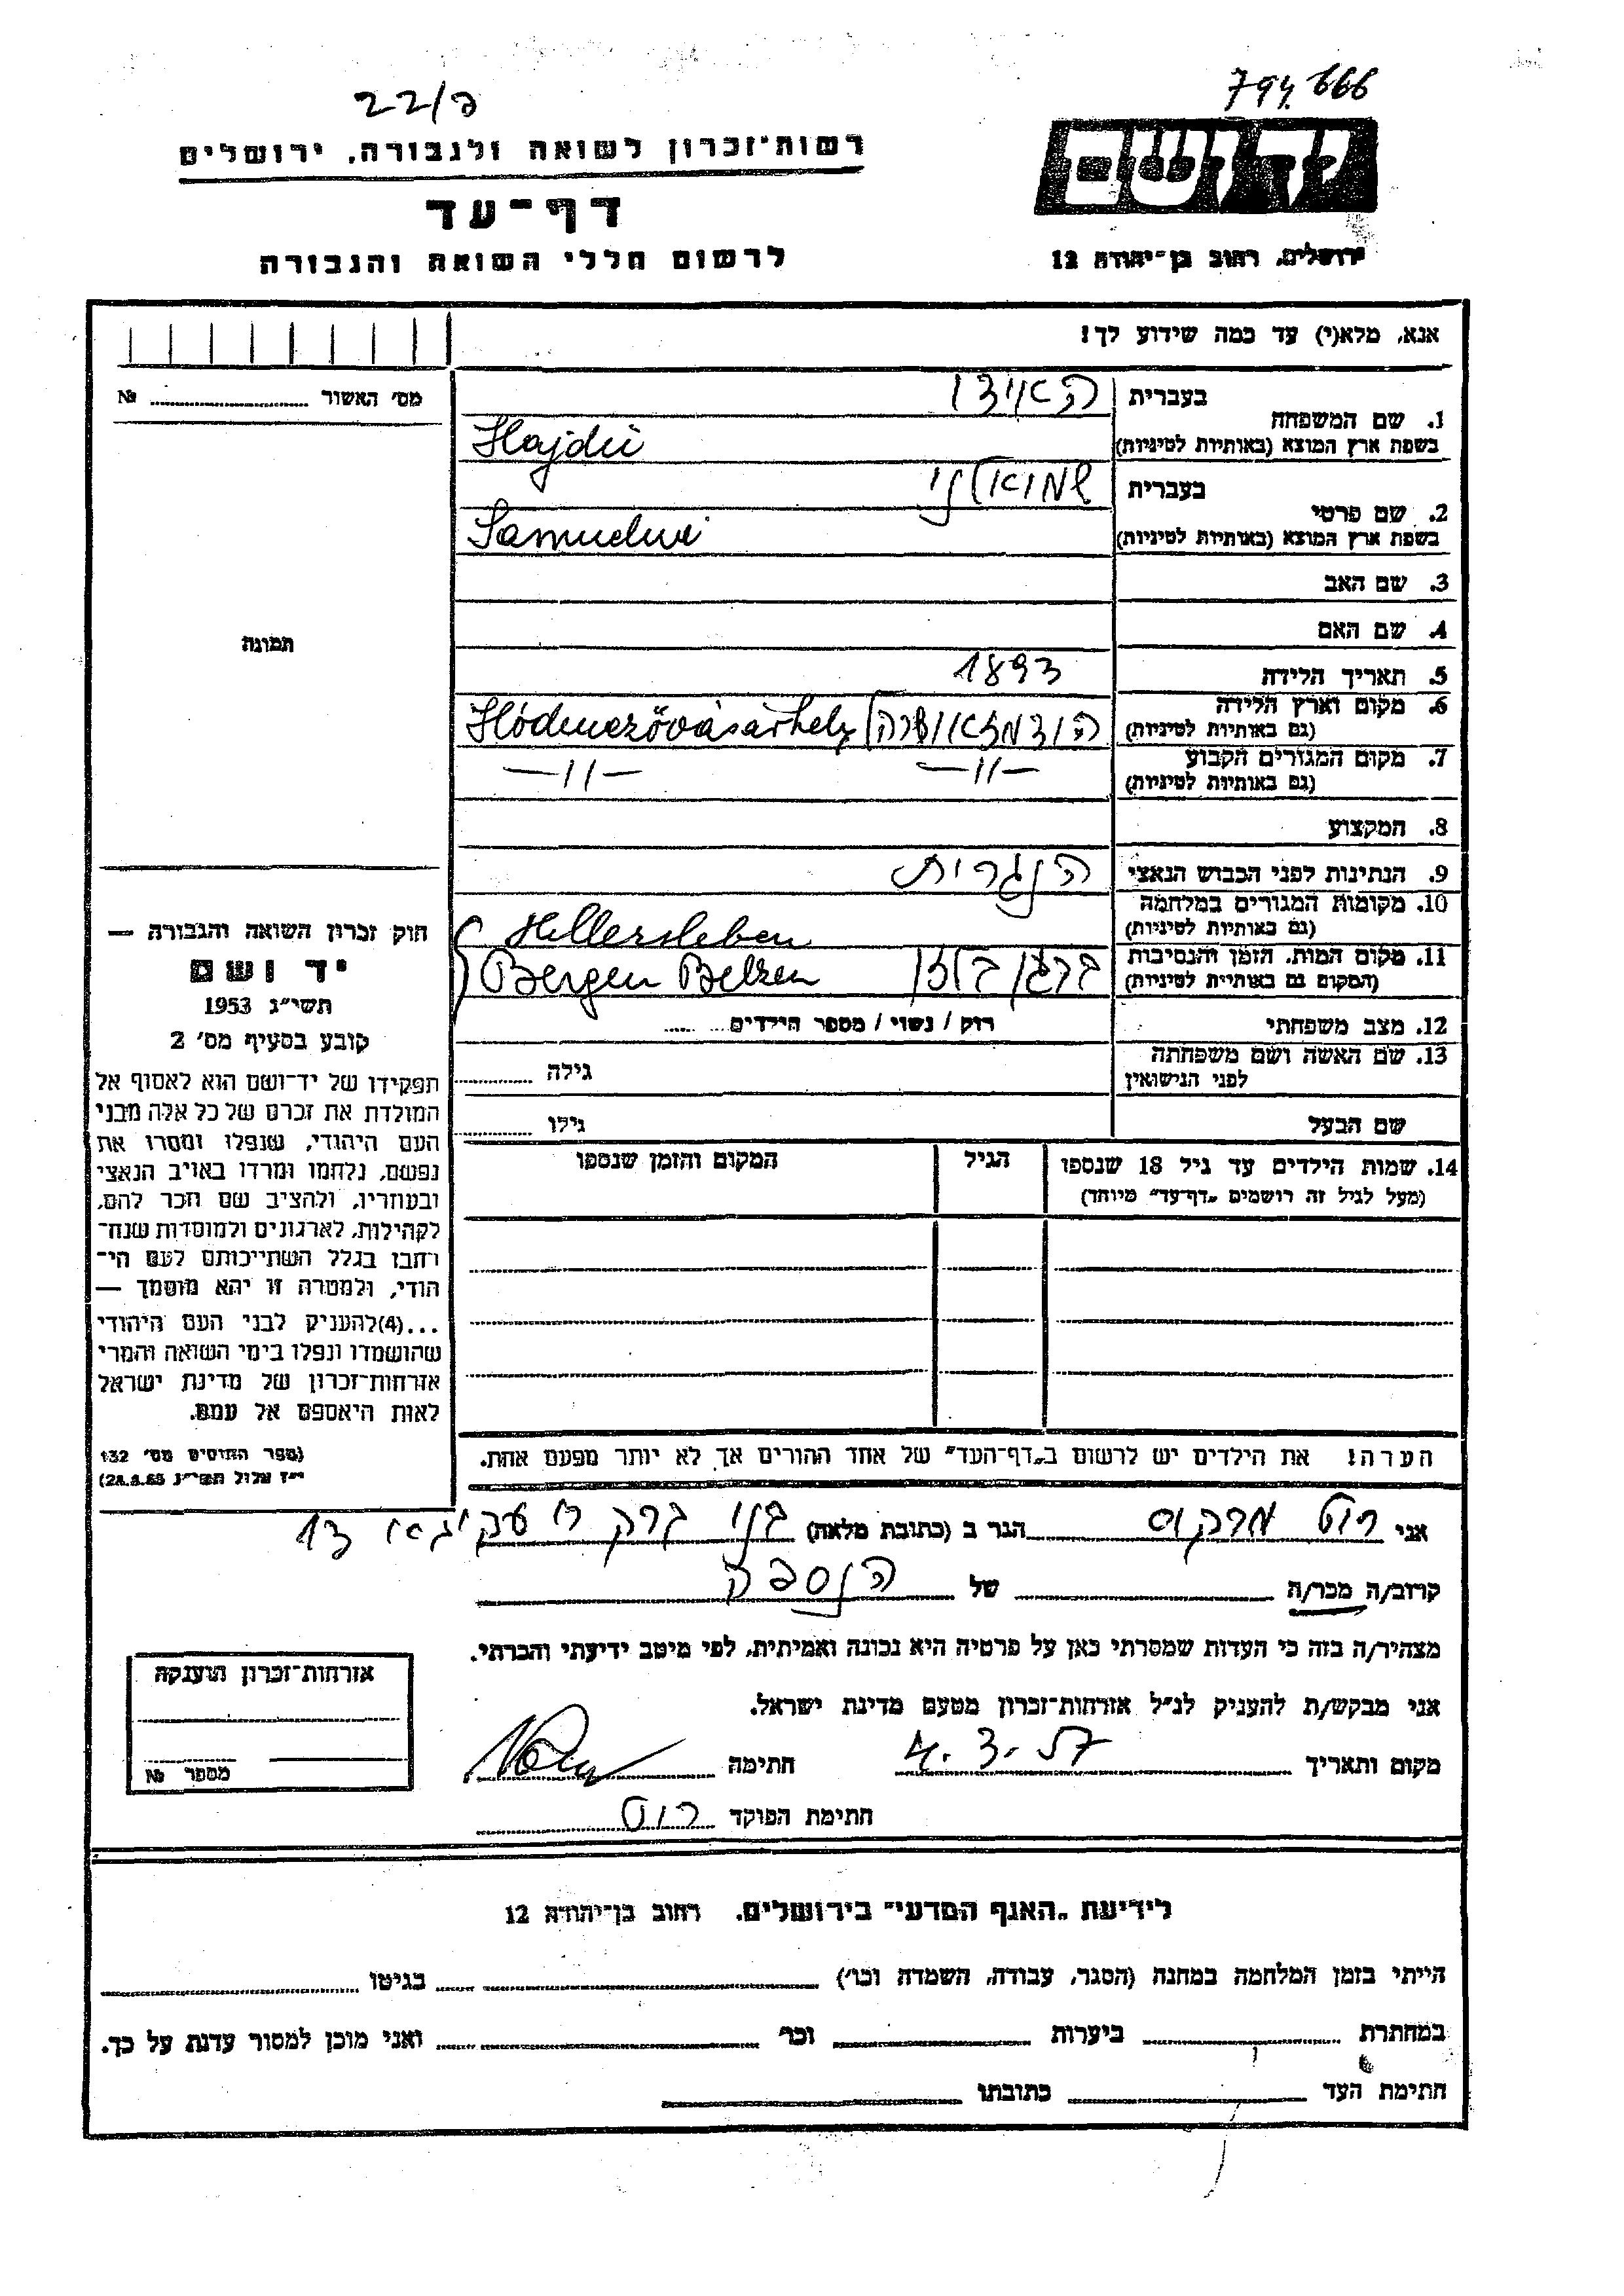 794.666
22/ק
יד ושם
רשות־זכרון לשואה ולגבורה, ירושלים
דף־עד
לרשום חללי השואה והגבורה
ירושלים, רחוב בן־יהודה 12
אנא, מלא(י) עד כמה שידוע לך!
מס׳ האשור № 
תמונה
חוק זכרון השואה והגבורה —
יד ושם
תשי״ג 1953
קובע בסעיף מס׳ 2
תפקידו של יד־ושם הוא לאסוף אל
המולדת את זכרם של כל אלה מבני
העם היהודי, שנפלו ומסרו את
נפשם, נלחמו ומרדו באויב הנאצי
ובעוזריו, ולהציב שם וזכר להם,
לקהילות, לארגונים ולמוסדות שנח־
רבו בגלל השתייכותם לעם הי־
הודי, ולמטרה זו יהא מוסמך —
...(4)להעניק לבני העם היהודי
שהושמדו ונפלו בימי השואה והמרי
אזרחות־זכרון של מדינת ישראל
לאות היאספם אל עמם.
(ספר החוקים מס׳ 132
י״ז אלול תשי״ג
1. שם המשפחה
בעברית האידו
בשפת ארץ המוצא (באותיות לטיניות) Hajdu
2. שם פרטי
בעברית שמואלני
בשפת ארץ המוצא (באותיות לטיניות) Samuelné
3. שם האב
4. שם האם
5. תאריך הלידה 1893
6. מקום וארץ הלידה
(גם באותיות לטיניות) Hódmezővásárhely
7. מקום המגורים הקבוע —״— —״—
(גם באותיות לטיניות)
8. המקצוע
9. הנתינות לפני הכבוש הנאצי הונגרית
10. מקומות המגורים במלחמה
(גם באותיות לטיניות) Hillersleben
11. מקום המות, הזמן והנסיבות ברגן בלזן
(המקום גם באותיות לטיניות) Bergen Belzen
12. מצב משפחתי רוק / נשוי / מספר הילדים
13. שם האשה ושם משפחתה
לפני הנישואין גילה
שם הבעל גילו
14. שמות הילדים עד גיל 18 שנספו הגיל המקום והזמן שנספו
(מעל לגיל זה רושמים „דף־עד״ מיוחד)
הערה! את הילדים יש לרשום ב„דף־העד״ של אחד ההורים אך לא יותר מפעם אחת.
אני רוט מרקוס הגר ב (כתובת מלאה) בני ברק ר׳ עקיבא 13
קרוב/ה מכר/ה של הנספה
מצהיר/ה בזה כי העדות שמסרתי כאן על פרטיה היא נכונה ואמיתית, לפי מיטב ידיעתי והכרתי.
אני מבקש/ת להעניק לנ״ל אזרחות־זכרון מטעם מדינת ישראל.
מקום ותאריך 4.3.57 חתימה
חתימת הפוקד רוט
אזרחות־זכרון הוענקה
מספר №
לידיעת „האגף המדעי״ בירושלים, רחוב בן־יהודה 12
הייתי בזמן המלחמה במחנה (הסגר, עבודה, השמדה וכו׳) בגיטו
במחתרת ביערות וכו׳ ואני מוכן למסור עדות על כך.
חתימת העד כתובתו